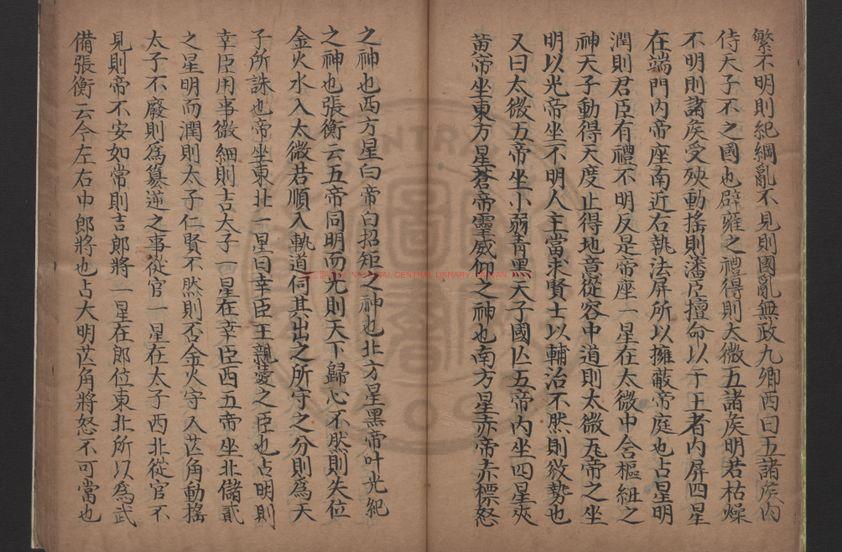 繁不明則紀綱亂不見則國亂無政九卿西曰五諸矦內
侍天子不之國也辟雍之禮得則太微五諸矦明若枯燥
不明則諸矦受殃動搖則藩臣擅命以于王者內屏四星
在端門內帝座南近右執法屏所以擁蔽帝庭也占星明
潤則君臣有禮不明反是帝座一星在太微中含樞紐之
神天子動得天度止得地意從容中道則太微五帝之坐
明以光帝坐不明人主當求賢士以輔治不然則
又曰太微五帝坐小弱青黑天子國亾五帝內坐四星夾
黃帝坐東方星蒼帝靈威仰之神也南方星赤帝赤標怒
之神也西方星白帝白招矩之神也北方星黑帝叶光紀
之神也張衡云五帝同明而光則天下歸心不然則失位
金火水入太微若順入軌道伺其出之所守之分則爲天
子所誅也帝坐東北一星曰幸臣王親愛之臣也占明則
幸臣用事微細則吉太子一星在幸臣西五帝坐北儲貳
之星明而潤則太子仁賢不然則否金火守入芒角動搖
太子不廢則爲篡逆之事從官一星在太子西北從官不
見則帝不安如常則吉郎將一星在郎位東北所以爲武
備張衡云今左右中郎將也占大明芒角將怒不可當也
CENTRAL LIBRARY